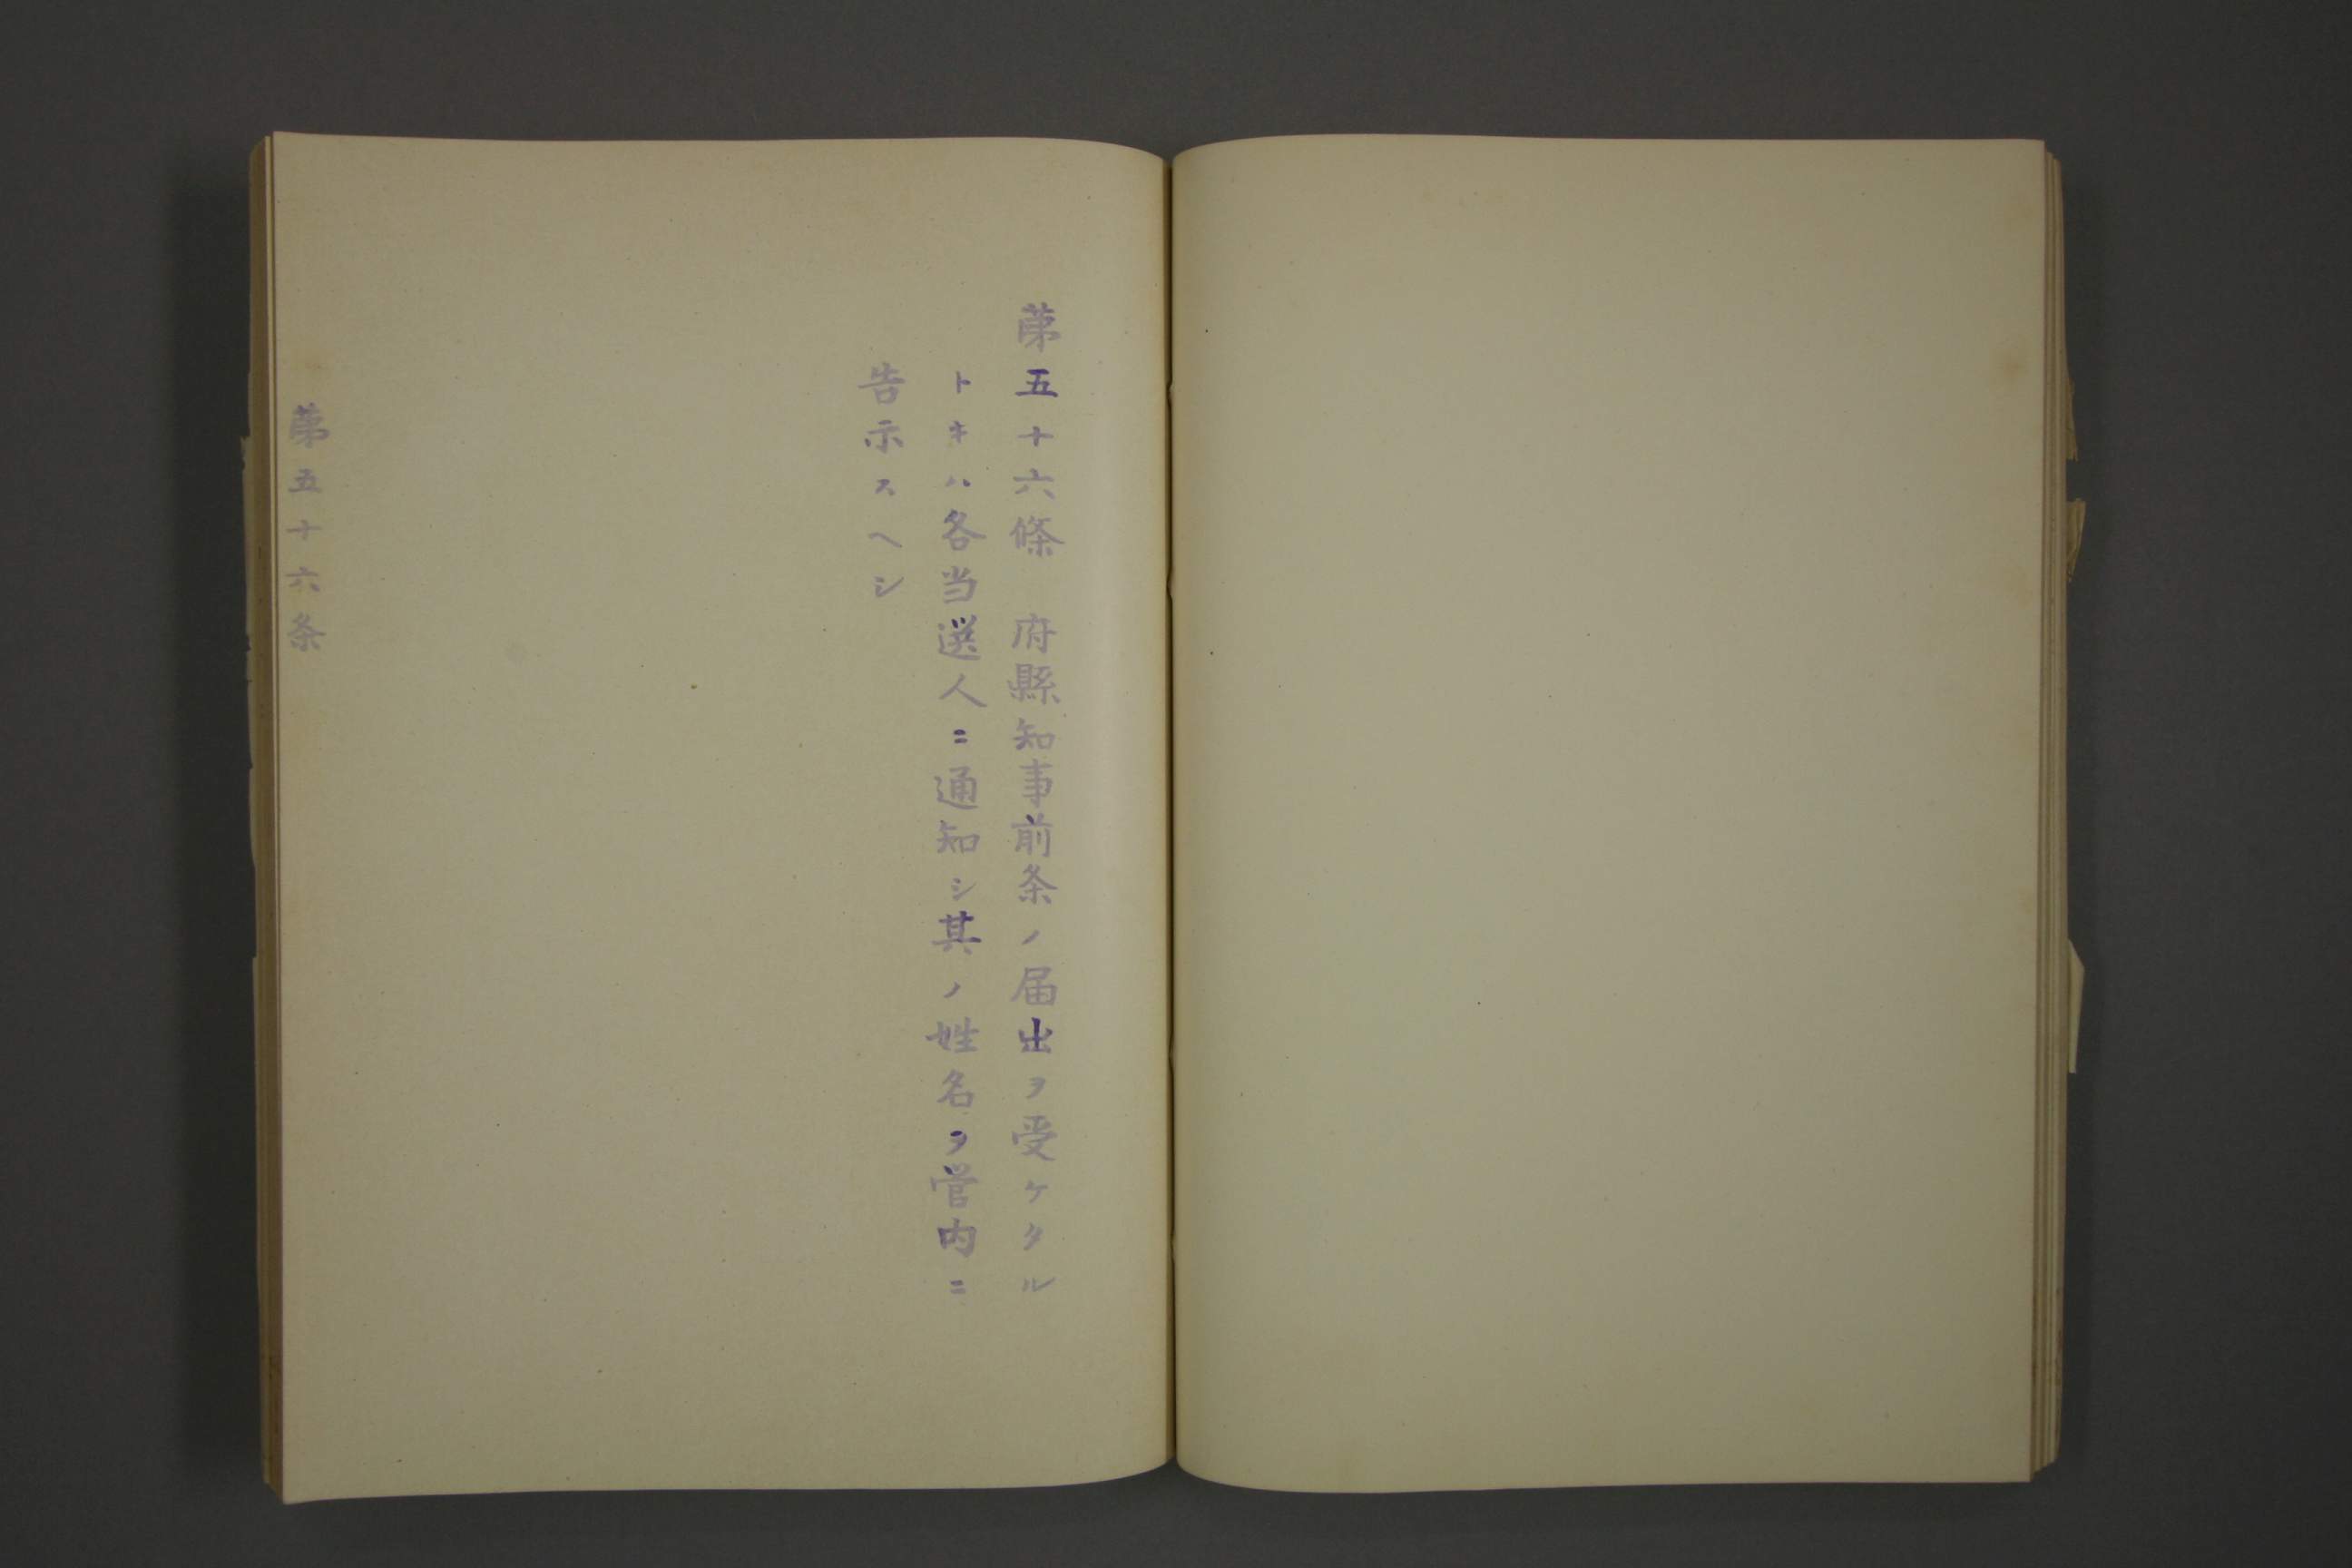 第五十六條　府縣知事前条ノ届出ヲ受ケタル
トキハ各当選人ニ通知シ其ノ姓名ヲ管内ニ
告示スヘシ
第五十六条